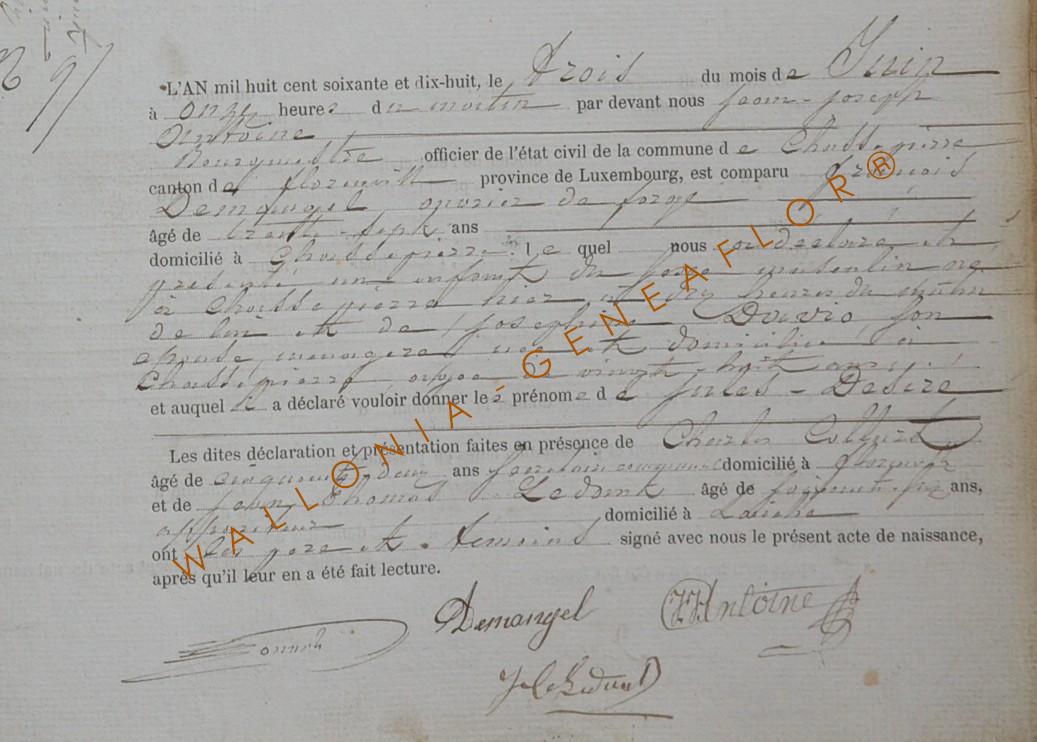 L'AN mil huit cent soixante et dix-huit, le Trois du mois de Juin
à onze heures du matin par devant nous Jean-Joseph
Antoine
Bourgmestre officier de l'état civil de la commune de Chassepierre
canton de Florenville province de Luxembourg, est comparu François
Demangel, ouvrier de forge
âgé de trente-sept ans
domicilié à Chassepierre lequel nous a déclaré et
présenté un enfant du sexe masculin né
à Chassepierre hier, à dix heures du matin
de lui et de Joséphine son
épouse, ménagère, née et domiciliée à
Chassepierre, âgée de vingt-huit ans,
et auquel il a déclaré vouloir donner le prénom de Jules-Désiré
Les dites déclaration et présentation faites en présence de Charles
âgé de cinquante-deux ans domicilié à
et de Jean Thomas Ledant âgé de ans,
domicilié à Laiche
ont les père et témoins signé avec nous le présent acte de naissance,
après qu'il leur en a été fait lecture.
Demangel
Antoine
WALLONIA-GENEAFLOR®